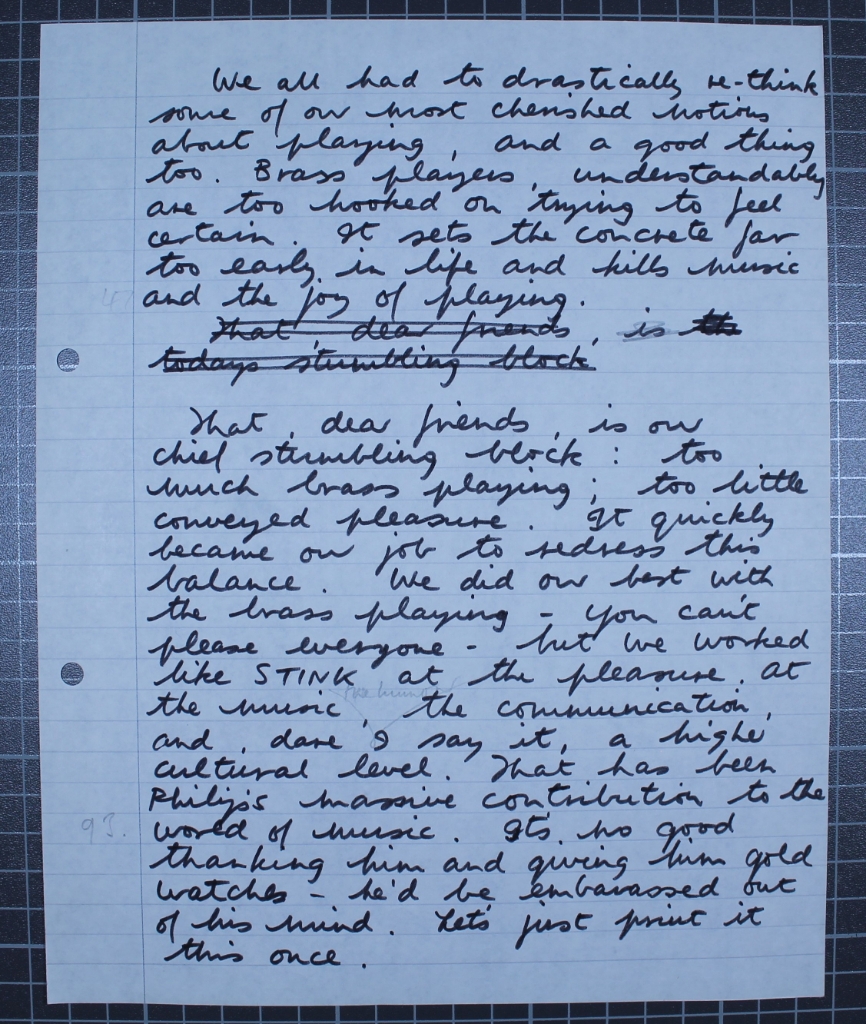 We all had to drastically re-think
some of our most cherished notions
about playing, and a good thing
too. Brass players, understandably
are too hooked on trying to feel
certain. It sets the concrete far
too early in life and kills music
and the joy of playing.
That, dear friends, is the
todays stumbling block
That, dear friends, is our
chief stumbling block: too
much brass playing; too little
conveyed pleasure. It quickly
became our job to redress this
balance. We did our best with
the brass playing - you can't
please everyone - but we worked
like STINK at the pleasure, at
the music, the communication,
and, dare I say it, a higher
cultural level. That has been
Philip's massive contribution to the
93.
world of music. Its no good
thanking him and giving him gold
watches - he'd be embarassed out
of his mind. Let's just print it
this once.